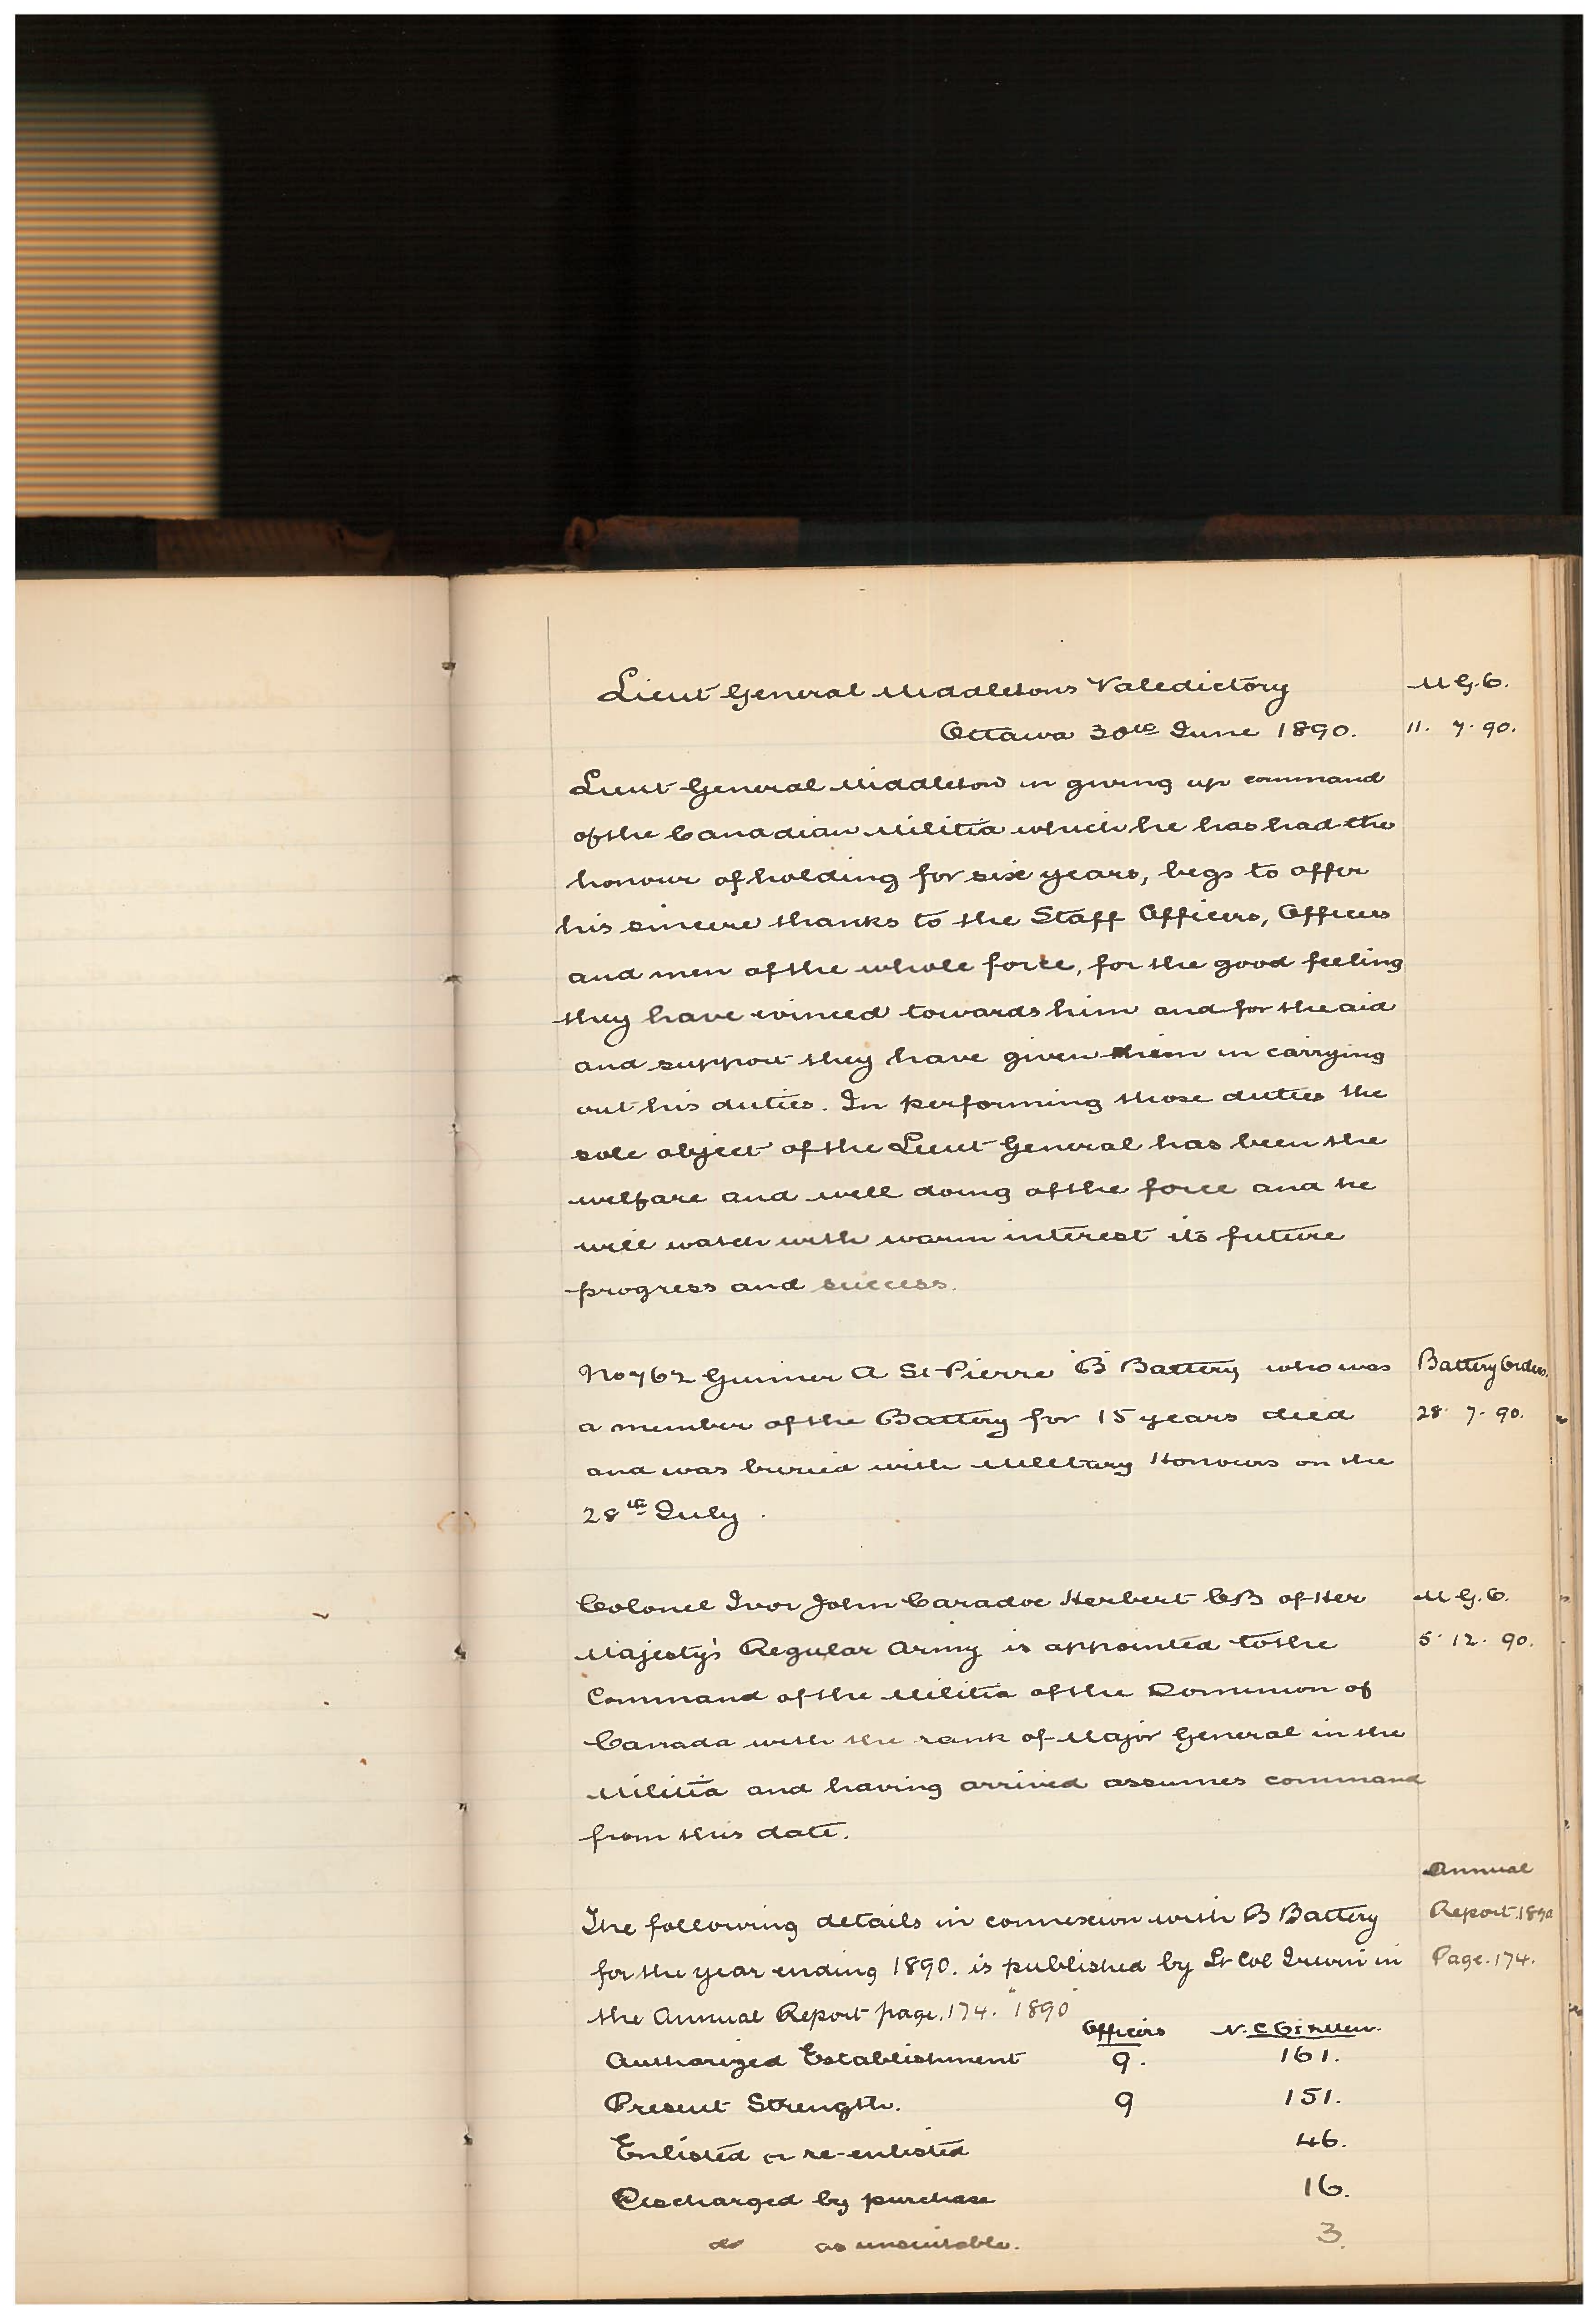 Lieut General Middletons Valedictory M.G.O.
Ottawa 30th June 1890. 11. 7. 90.
Lieut General Middleton in giving up command
of the Canadian Militia which he has had the
honour of holding for six years, begs to offer
his sincere thanks to the Staff Officers, Officers
and men of the whole force, for the good feeling
they have evinced towards him and for the aid
and support they have given him in carrying
out his duties. In performing those duties the
sole object of the Lieut General has been the
welfare and well doing of the force and he
will watch with warm interest its future
progress and success.
No 762 Gunner A St Pierre "B" Battery who was Battery Orders.
a member of the Battery for 15 years died 28. 7. 90.
and was buried with Military Honours on the
28th July.
Colonel Ivor John Caradoc Herbert CB of Her M.G.O.
Majesty's Regular Army is appointed to the 5. 12. 90.
Command of the Militia of the Dominion of
Canada with the rank of Major General in the
Militia and having arrived assumes command
from this date.
Annual
The following details in connexion with B Battery Report.1890
for the year ending 1890. is published by Lt Col Irwin in Page.174.
the Annual Report page.174. "1890"
Officers N.C.O's & Men.
Authorized Establishment 9. 161.
Present Strength. 9 151.
Enlisted or re-enlisted 46.
Discharged by purchase 16.
do as unsuitable. 3.